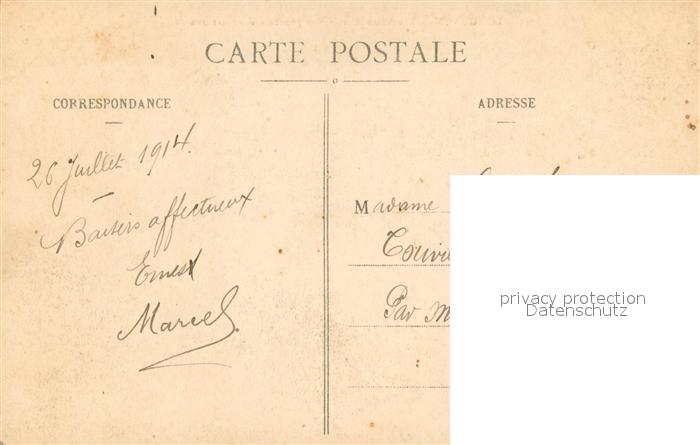 CARTE POSTALE
CORRESPONDANCE
ADRESSE
26 Juillet 1914.
Baisers affectueux
Ernest
Marcel.
Madame
Par
privacy protection
Datenschutz